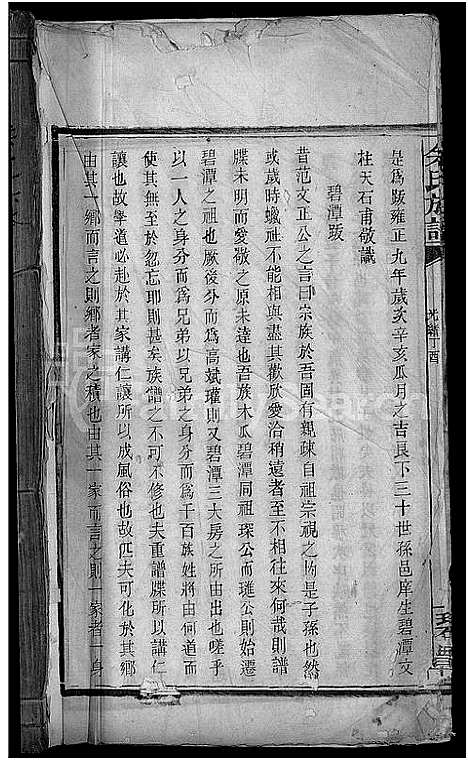 是爲跋雍正九年歲次辛亥瓜月之吉良下三十世孫邑庠生碧潭文
柱天石甫敬識
碧潭跋
昔范文正公之言曰宗族於吾固有親疎自祖宗視之均是子孫也然
或歲時蠟祉不能相與盡其歡欣愛洽稍遠者至不相往來何哉則譜
牒未明而愛敬之原未達也吾族木瓜碧潭同祖琛公而璡公則始遷
碧潭之祖也厥後分而爲高斌瓘則又碧潭三大房之所由出也嗟乎
以一人之身分而爲兄弟以兄弟之身分而爲千百族姓將由何道而
使其無至於忽忘耶則甚矣族譜之不可不修也夫重譜牒所以講仁
讓也故學道必赴於其家講仁讓所以成風俗也故匹夫可化於其鄉
由其一鄉而言之則鄉者家之積也由其一家而言之則一家者一身
氏族譜
光緒丁酉